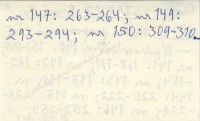 nr 147: 263-264; nr 149:
293-294; nr 150: 309-310.